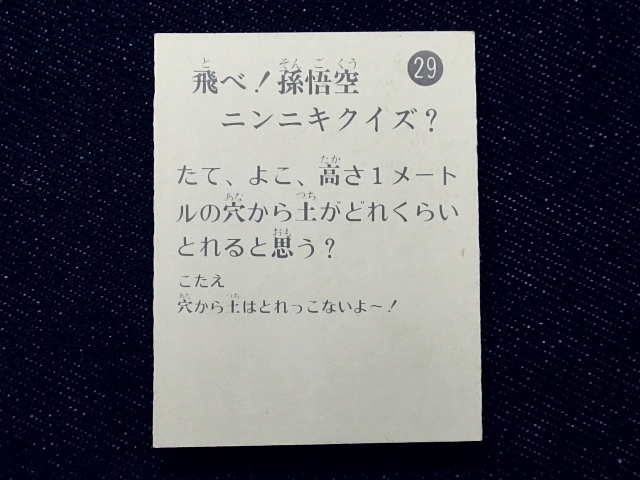 飛べ！孫悟空
29
ニンニキクイズ？
たて、よこ、高さ1メート
ルの穴から土がどれくらい
とれると思う？
こたえ
穴から土はとれっこないよ〜！